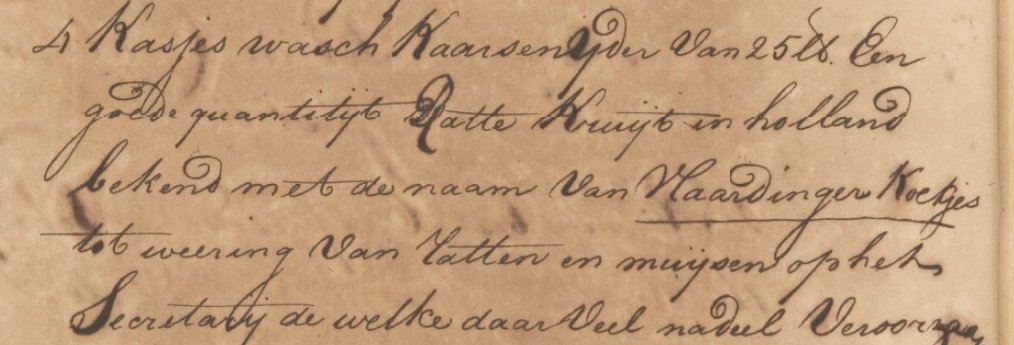 4 Kasjes wasch Kaarsen Yder Van 25 lb. Een
goede quantitijt Ratte Kruijt in holland
bekend met de naam Van Vlaardinger Koekjes
tot weering Van ratten en muijsen op het
Secretarij de welke daar Veel nadeel